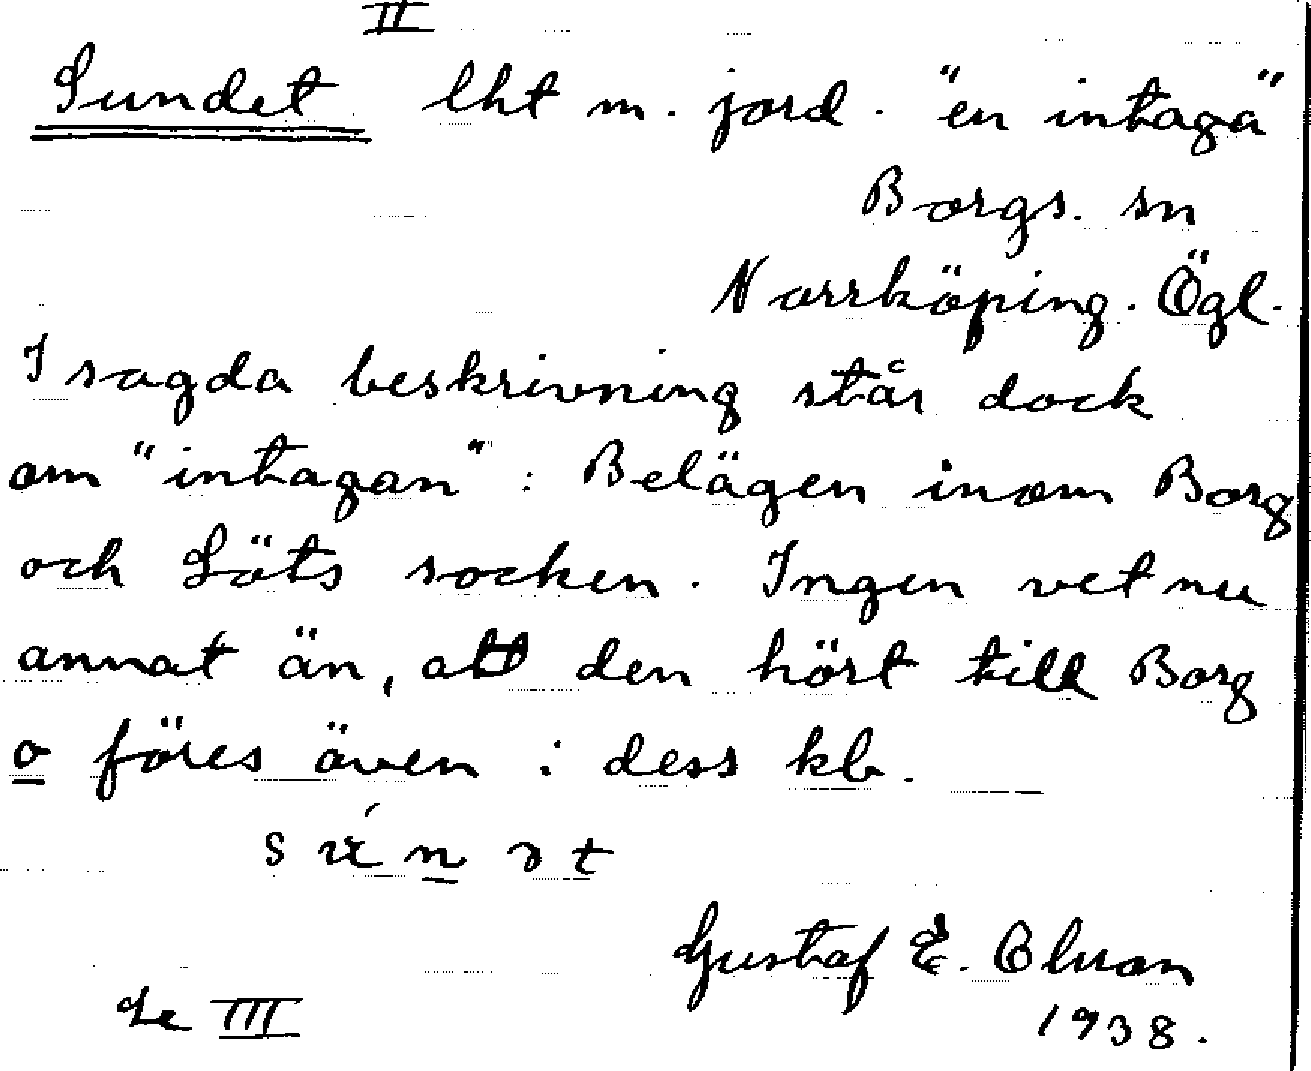 II
Sundet lht m. jord. "en intaga"
Borgs. sn
Norrköping. Ögl.
I sagda beskrivning står dock
om "intagan": Belägen inom Borg
och Löts socken. Ingen vet nu
annat än, att den hört till Borg
o föres även i dess kb.
Gustaf E. Olson
1938.
Se III